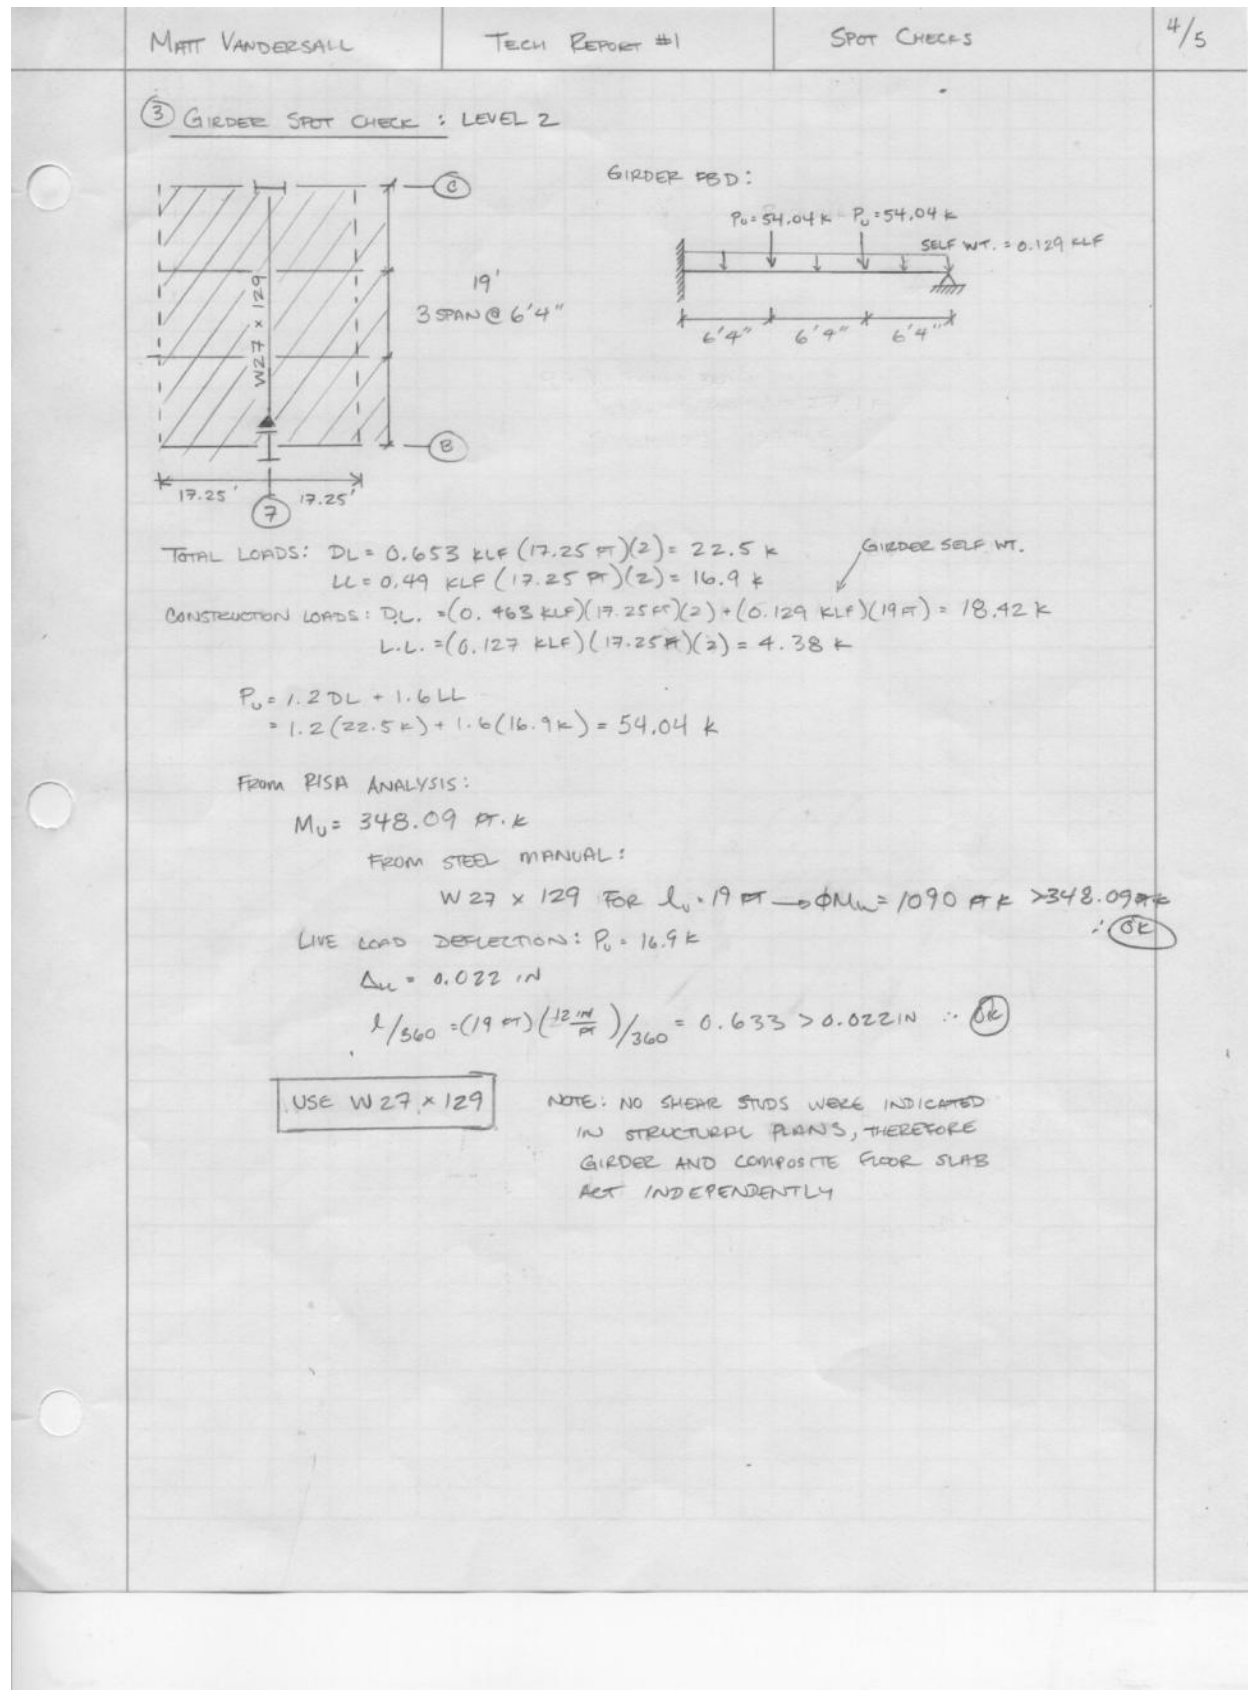 MATT VANDERSALL
TECH REPORT #1
SPOT CHECKS
4/5
③ GIRDER SPOT CHECK : LEVEL 2
C
19'
3 SPAN @ 6'4"
W27 x 129
B
17.25' 17.25'
7
GIRDER FBD:
Pu = 54.04 k Pu = 54.04 k
SELF WT. = 0.129 KLF
6'4" 6'4" 6'4"
TOTAL LOADS: DL = 0.653 KLF (17.25 FT)(2) = 22.5 k
GIRDER SELF WT.
LL = 0.49 KLF (17.25 FT)(2) = 16.9 k
CONSTRUCTION LOADS: D.L. = (0.463 KLF)(17.25 FT)(2) + (0.129 KLF)(19 FT) = 18.42 k
L.L. = (0.127 KLF)(17.25 FT)(2) = 4.38 k
Pu = 1.2 DL + 1.6 LL
= 1.2 (22.5 k) + 1.6 (16.9 k) = 54.04 k
FROM RISA ANALYSIS:
Mu = 348.09 FT.k
FROM STEEL MANUAL:
W 27 x 129 FOR lu = 19 FT → φMn = 1090 FT k > 348.09 FT k
∴ OK
LIVE LOAD DEFLECTION: Pu = 16.9 k
ΔLL = 0.022 IN
l/360 = (19 FT)(12 IN/FT)/360 = 0.633 > 0.022 IN ∴ OK
USE W 27 x 129
NOTE: NO SHEAR STUDS WERE INDICATED
IN STRUCTURAL PLANS, THEREFORE
GIRDER AND COMPOSITE FLOOR SLAB
ACT INDEPENDENTLY